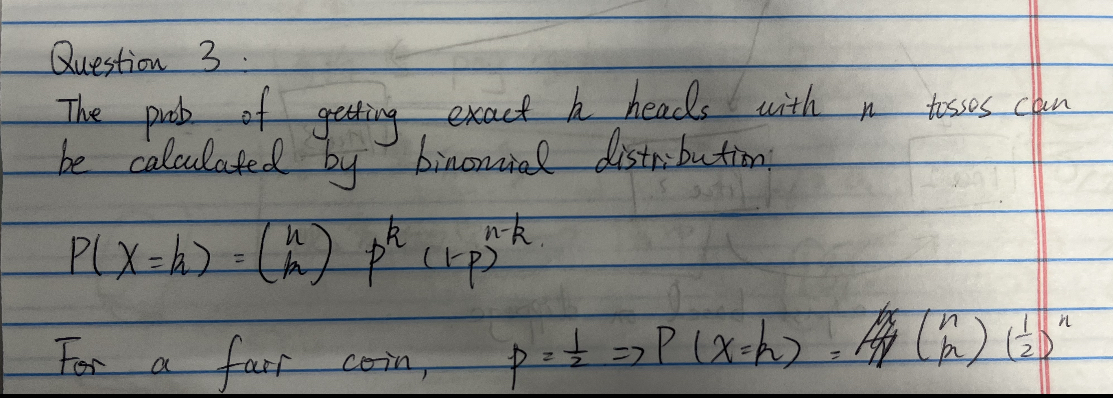 Question 3 :
The prob. of getting exact k heads with n tosses can
be calculated by binomial distribution:
P(X=k) = (n k) p^k (1-p)^n-k.
For a fair coin, p = 1/2 => P(X=k) = (n k) (1/2)^n